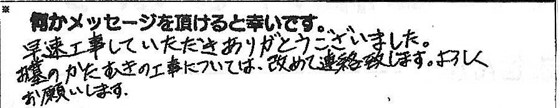 ※
何かメッセージを頂けると幸いです。
早速工事していただきありがとうございました。
お墓のかたむきの工事については、改めて連絡致します。よろしく
お願いします.